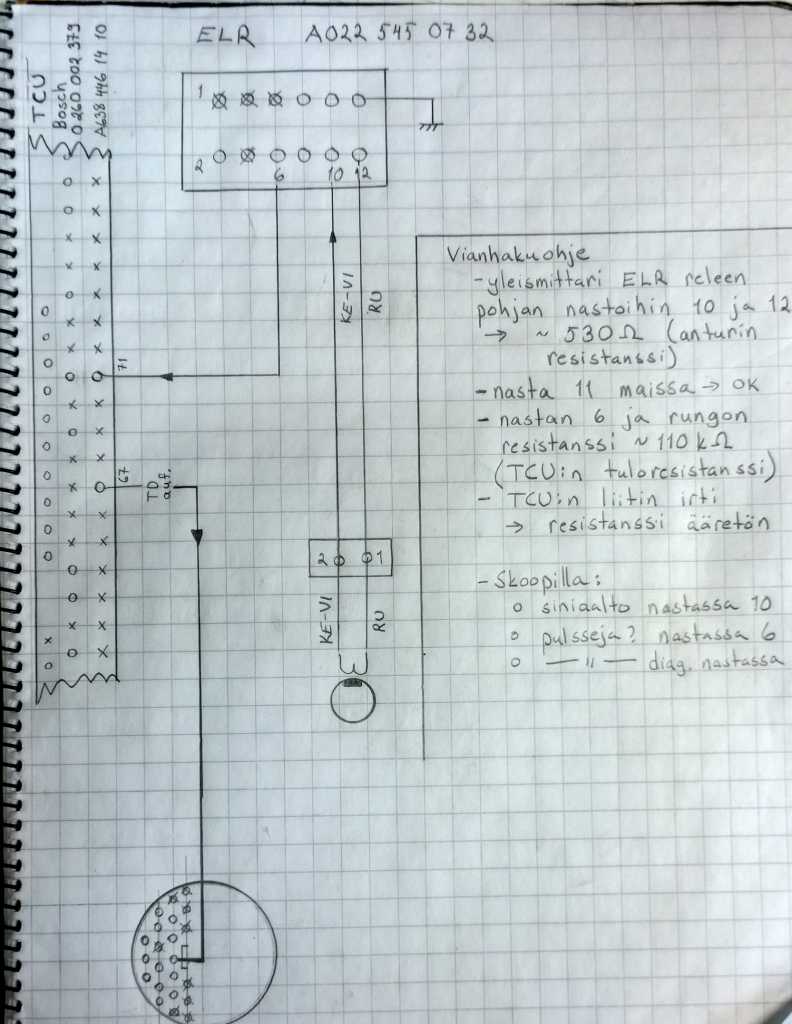 ELR A022 545 07 32
TCU
Bosch
0 260 002 379
A638 446 14 10
1
2
6 10 12
KE-VI
RU
71
67
TD
auf.
2 1
KE-VI
RU
Vianhakuohje
- yleismittari ELR releen
pohjan nastoihin 10 ja 12
→ ~ 530 Ω (anturin
resistanssi)
- nasta 11 maissa → OK
- nastan 6 ja rungon
resistanssi ~ 110 kΩ
(TCU:n tuloresistanssi)
- TCU:n liitin irti
→ resistanssi ääretön
- Skoopilla:
o siniaalto nastassa 10
o pulsseja? nastassa 6
o — " — diag. nastassa